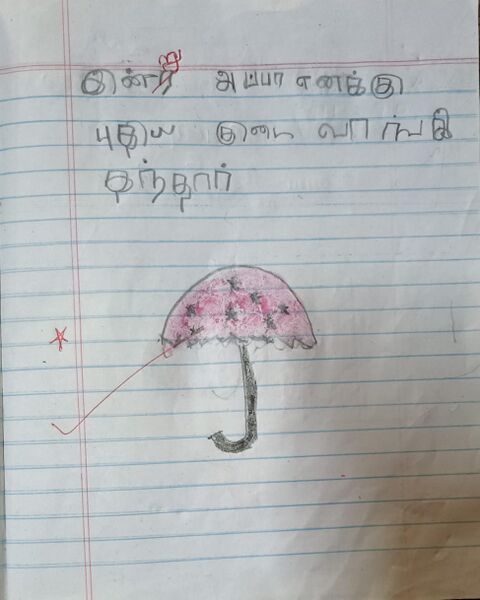 இன்று அப்பா எனக்கு
புதிய குடை வாங்கி
தந்தார்